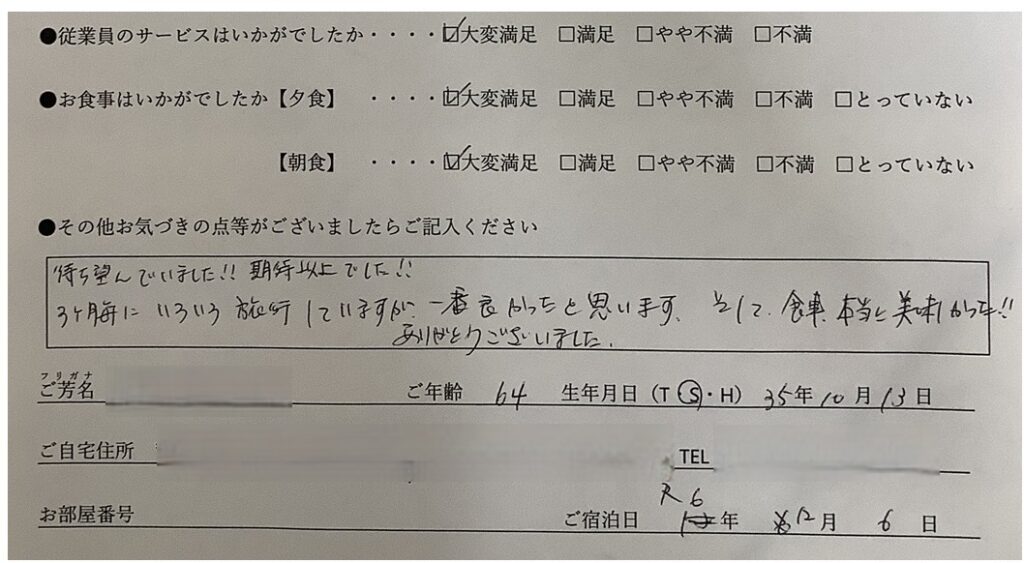 ●従業員のサービスはいかがでしたか・・・・☑大変満足 □満足 □やや不満 □不満
●お食事はいかがでしたか【夕食】 ・・・・☑大変満足 □満足 □やや不満 □不満 □とっていない
【朝食】 ・・・・☑大変満足 □満足 □やや不満 □不満 □とっていない
●その他お気づきの点等がございましたらご記入ください
待ち望んでいました!! 期待以上でした!!
3ヶ月毎にいろいろ旅行していますが、一番良かったと思います、 食事、本当に美味しかった!!
ありがとうございました。
フリガナ
ご芳名 ご年齢 64 生年月日(T Ⓢ・H) 35年10月13日
ご自宅住所 TEL
お部屋番号 ご宿泊日 R6年 12月 6日